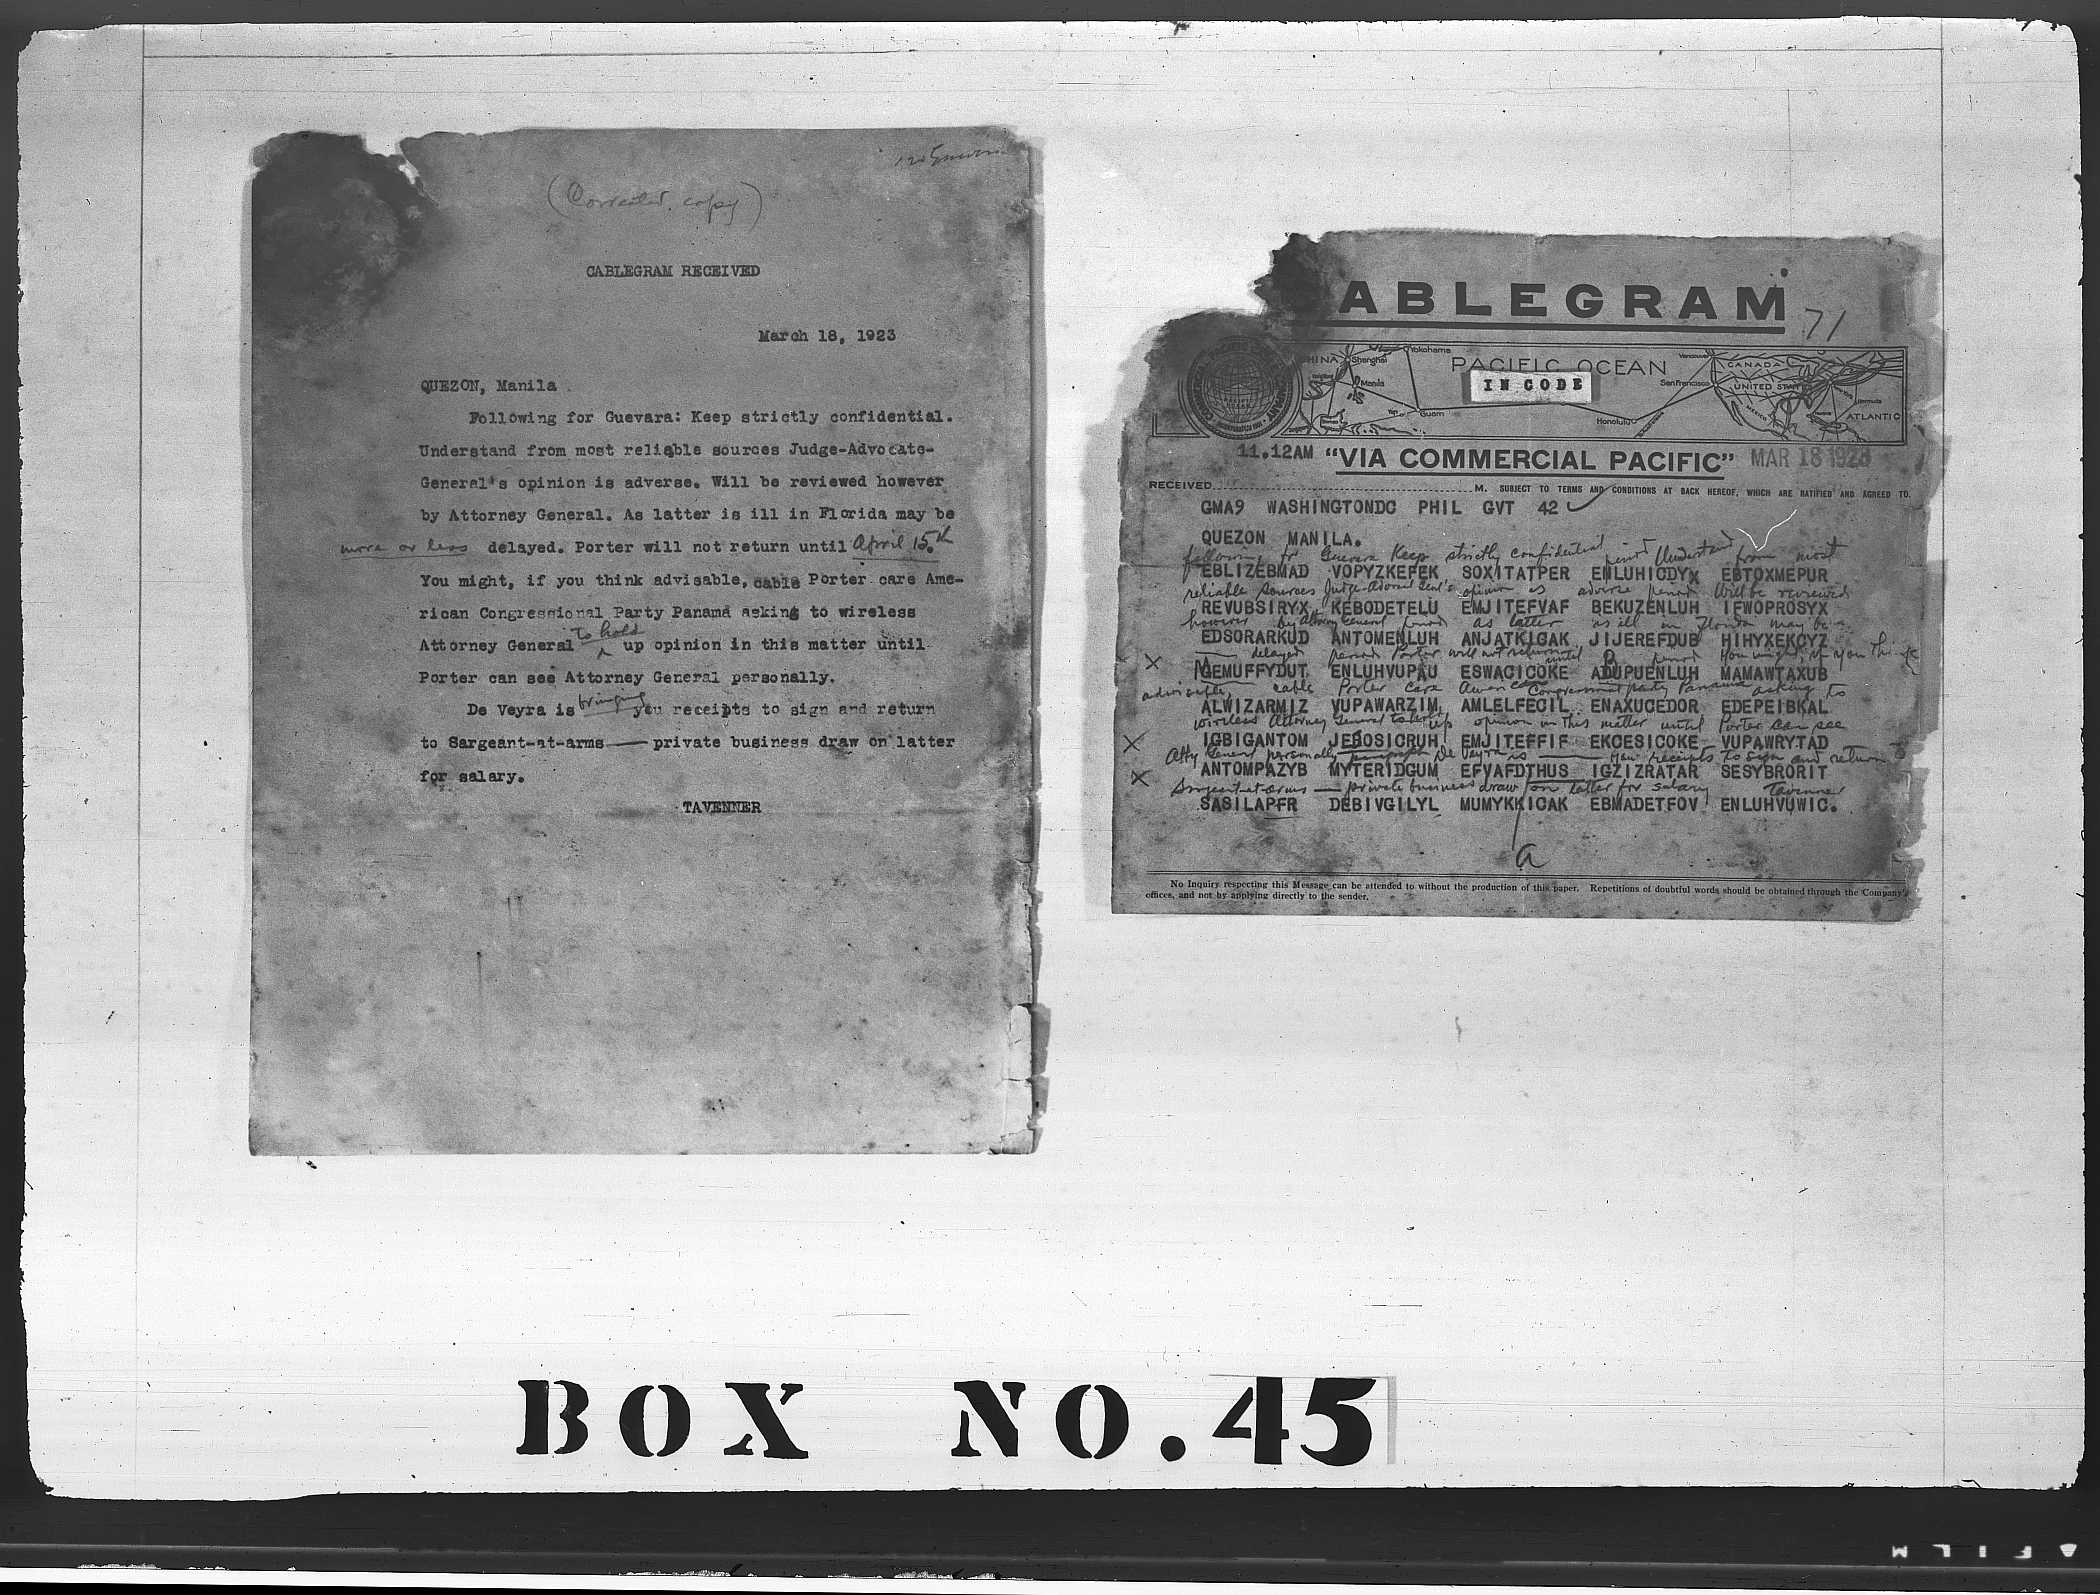 (Corrected copy)
CABLEGRAM RECEIVED
March 18, 1923
QUEZON, Manila
Following for Guevara: Keep strictly confidential.
Understand from most reliable sources Judge-Advocate-
General's opinion is adverse. Will be reviewed however
by Attorney General. As latter is ill in Florida may be
more or less delayed. Porter will not return until April 15th
You might, if you think advisable, cable Porter care Ame-
rican Congressional Party Panama asking to wireless
Attorney General to hold up opinion in this matter until
Porter can see Attorney General personally.
De Veyra is bringing you receipts to sign and return
to Sargeant-at-arms — private business draw on latter
for salary.
TAVENNER
ABLEGRAM
71
CHINA Shanghai Yokohama PACIFIC OCEAN Vancouver CANADA
IN CODE
Manila San Francisco UNITED STATES
Yap Guam Honolulu MEXICO ATLANTIC
11.12AM "VIA COMMERCIAL PACIFIC" MAR 18 1923
RECEIVED M. SUBJECT TO TERMS AND CONDITIONS AT BACK HEREOF, WHICH ARE RATIFIED AND AGREED TO.
GMA9 WASHINGTONDC PHIL GVT 42
QUEZON MANILA.
following for Guevara Keep strictly confidential period Understand from most
EBLIZEBMAD VOPYZKEFEK SOXITATPER ENLUHICDYX EBTOXMEPUR
reliable sources Judge-Advocate Genl's opinion is adverse period Will be reviewed
REVUBSIRYX KEBODETELU EMJITEFVAF BEKUZENLUH IFWOPROSYX
however by Attorney General period as latter is ill in Florida may be
EDSORARKUD ANTOMENLUH ANJATKIGAK JIJEREFDUB HIHYXEKCYZ
delayed period Porter will not return until period You might, if you think
NGEMUFFYDUT ENLUHVUPAU ESWACICOKE ADUPUENLUH MAMAWTAXUB
advisable, cable Porter care American Congressional party Panama asking to
ALWIZARMIZ VUPAWARZIM AMLELFECIL ENAXUCEDOR EDEPEIBKAL
wireless Attorney General to hold up opinion in this matter until Porter can see
IGBIGANTOM JEBOSICRUH EMJITEFFIF EKCESICOKE VUPAWRYTAD
Atty General personally paragraph De Veyra is you receipts to sign and return
ANTOMPAZYB MYTERIDGUM EFVAFDTHUS IGZIZRATAR SESYBRORIT
Sergeant-at-arms — private business draw on latter for salary Tavenner
SASILAPFR DEBIVGILYL MUMYKKICAK EBMADETFOV ENLUHVUWIC.
a
No Inquiry respecting this Message can be attended to without the production of this paper. Repetitions of doubtful words should be obtained through the Company's
offices, and not by applying directly to the sender.
BOX NO. 45